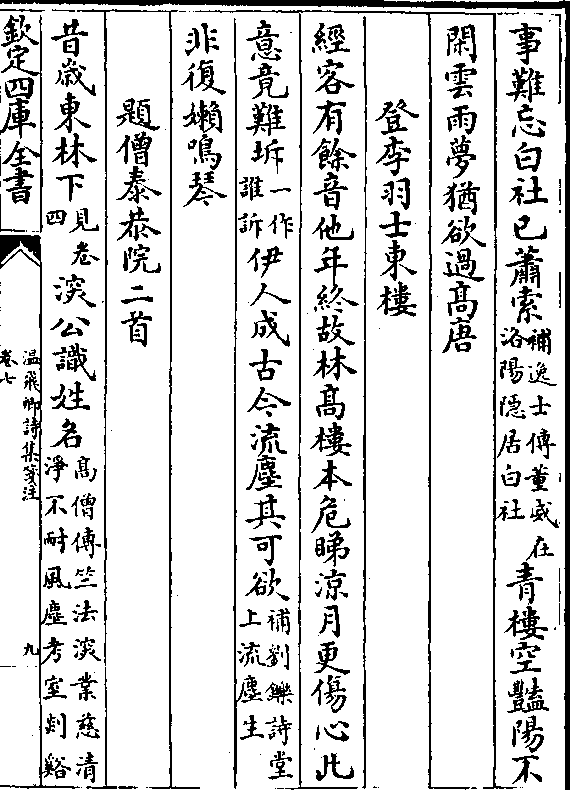 事難忘白社已蕭索補逸士傳董威在洛陽隠居白社青樓空豔陽不
閑雲雨夢猶欲過髙唐
登李羽士東樓
經客有餘音他年終故林髙樓本危睇涼月更傷心此
意竟難坼一作誰訴伊人成古今流塵其可欲補劉鑠詩堂上流塵生
非復嬾鳴琴
題僧泰恭院二首
昔歲東林下見卷四深公識姓名髙僧傳竺法深業慈清淨不耐風塵考室剡谿
欽定四庫全書
溫飛卿詩集箋注
卷七
九